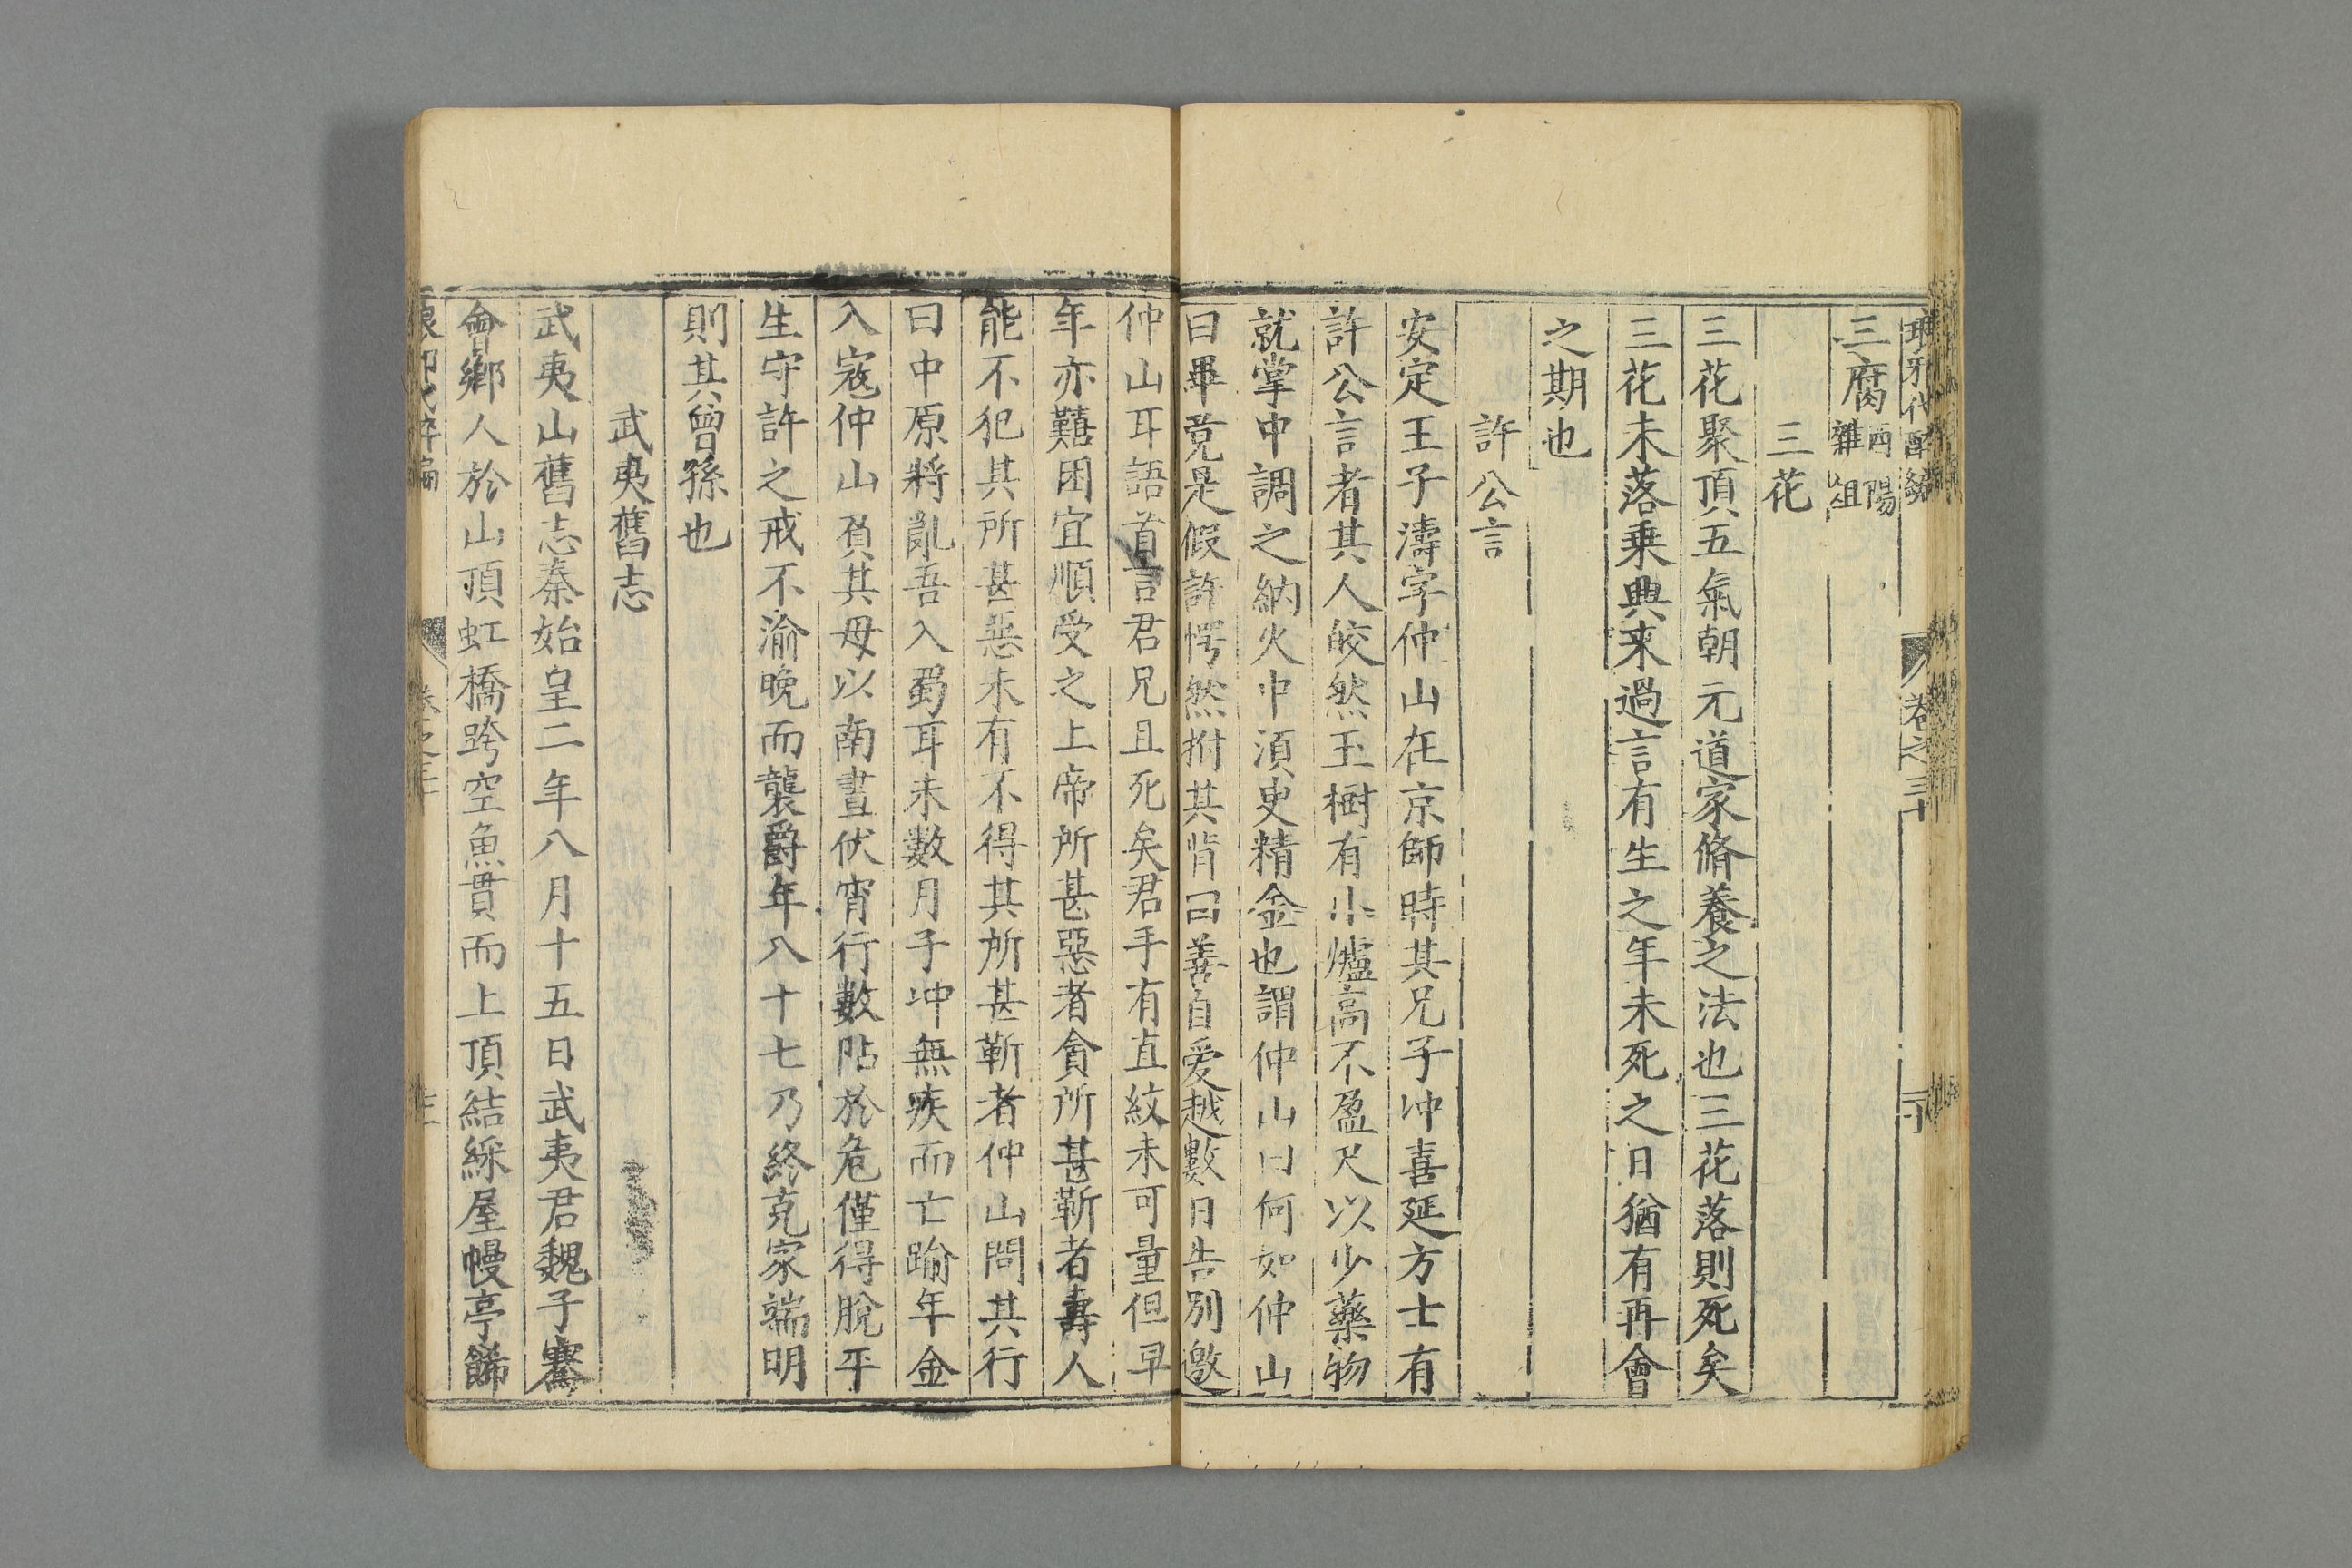 三腐西陽雜俎
三花
三花聚頂五氣朝元道家脩養之法也三花落則死矣
三花未落乗興来過言有生之年未死之日猶有再會
之期也
許公言
安定王子濤字仲山在京師時其兄子冲喜延方士有
許公言者其人皎然玉樹有小爐高不盈尺以少藥物
就掌中調之納火中湏臾精金也謂仲山曰何如仲山
曰畢竟是假許愕然拊其背曰善自爱越數日告别邀
仲山耳語首言君兄且死矣君手有直紋未可量但早
年亦囏困宜順受之上帝所甚惡者貪所甚靳者壽人
能不犯其所甚惡未有不得其所甚靳者仲山問其行
曰中原将亂吾入蜀耳未數月子冲無疾而亡踰年金
入寇仲山負其母以南晝伏宵行數阽於危僅得脫平
生守許之戒不渝晚而襲爵年八十七乃終克家端明
則其曾孫也
武夷舊志
武夷山舊志秦始皇二年八月十五日武夷君魏子騫
會鄉人於山頂虹橋跨空魚貫而上頂結綵屋幔亭餙